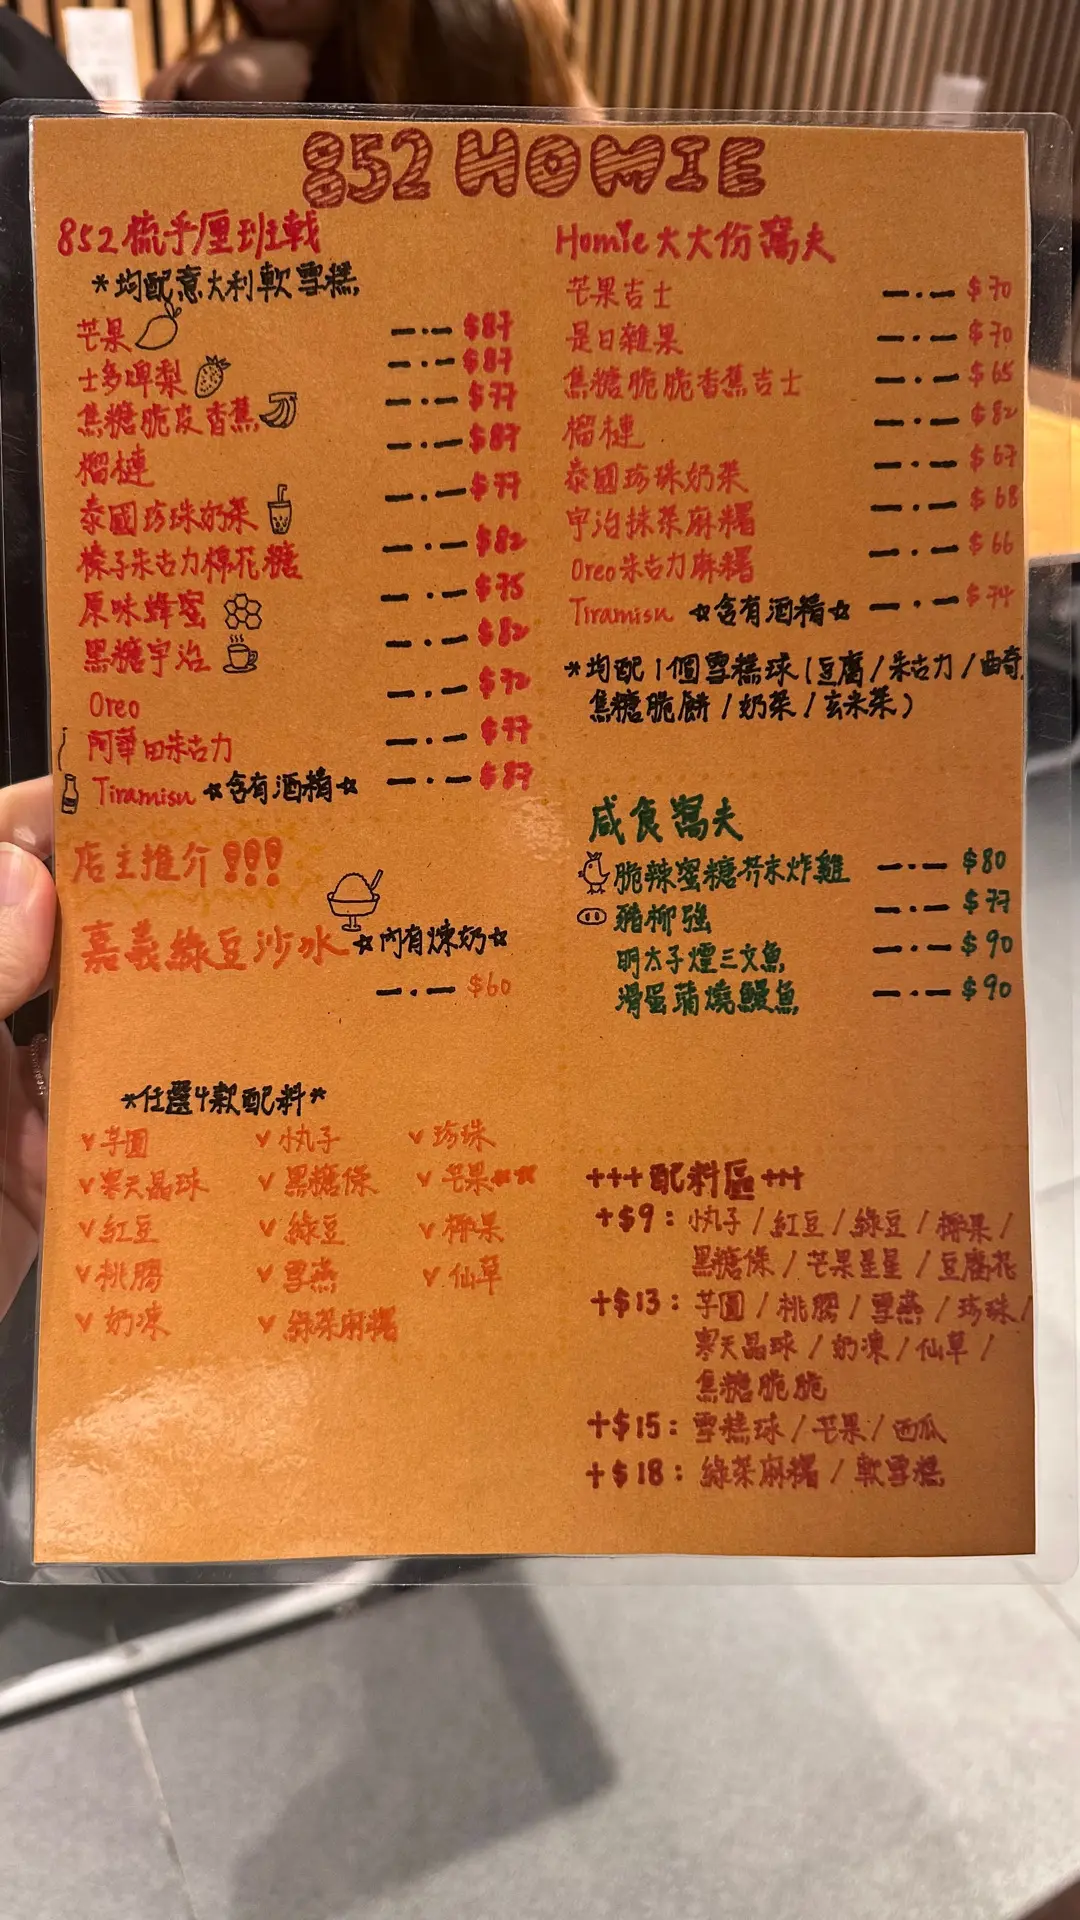 852 HOMIE
852 梳乎厘班戟
*均配意大利軟雪糕
芒果 —·— $87
士多啤梨 —·— $87
焦糖脆皮香蕉 —·— $77
榴槤 —·— $87
泰國珍珠奶茶 —·— $77
榛子朱古力棉花糖 —·— $82
原味蜂蜜 —·— $75
黑糖宇治 —·— $82
Oreo —·— $72
阿華田朱古力 —·— $77
Tiramisu ☆含有酒精☆ —·— $87
店主推介!!!
嘉義綠豆沙冰 ☆內有煉奶☆
—·— $60
*任選4款配料*
v 芋圓 v 小丸子 v 珍珠
v 寒天晶球 v 黑糖條 v 芒果
v 紅豆 v 綠豆 v 椰果
v 桃膠 v 雪燕 v 仙草
v 奶凍 v 綠茶麻糬
Homie 大大份窩夫
芒果吉士 —·— $70
是日雜果 —·— $70
焦糖脆脆香蕉吉士 —·— $65
榴槤 —·— $82
泰國珍珠奶茶 —·— $67
宇治抹茶麻糬 —·— $68
Oreo朱古力麻糬 —·— $66
Tiramisu ☆含有酒精☆ —·— $74
*均配1個雪糕球(豆腐/朱古力/曲奇
焦糖脆餅/奶茶/玄米茶)
咸食窩夫
脆辣蜜糖芥末炸雞 —·— $80
豬柳強 —·— $77
明太子煙三文魚 —·— $90
滑蛋蒲燒鰻魚 —·— $90
+++配料區+++
+$9: 小丸子/紅豆/綠豆/椰果/
黑糖條/芒果星星/豆腐花
+$13: 芋圓/桃膠/雪燕/珍珠/
寒天晶球/奶凍/仙草/
焦糖脆脆
+$15: 雪糕球/芒果/西瓜
+$18: 綠茶麻糬/軟雪糕